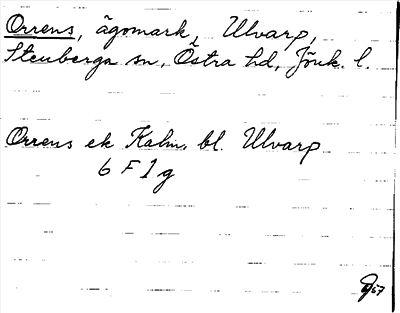 Orrens, ägomark, Ulvarp,
Stenberga sn, Östra hd, Jönk. l.
Orrens ek Kalm. bl. Ulvarp
6 F 1 g